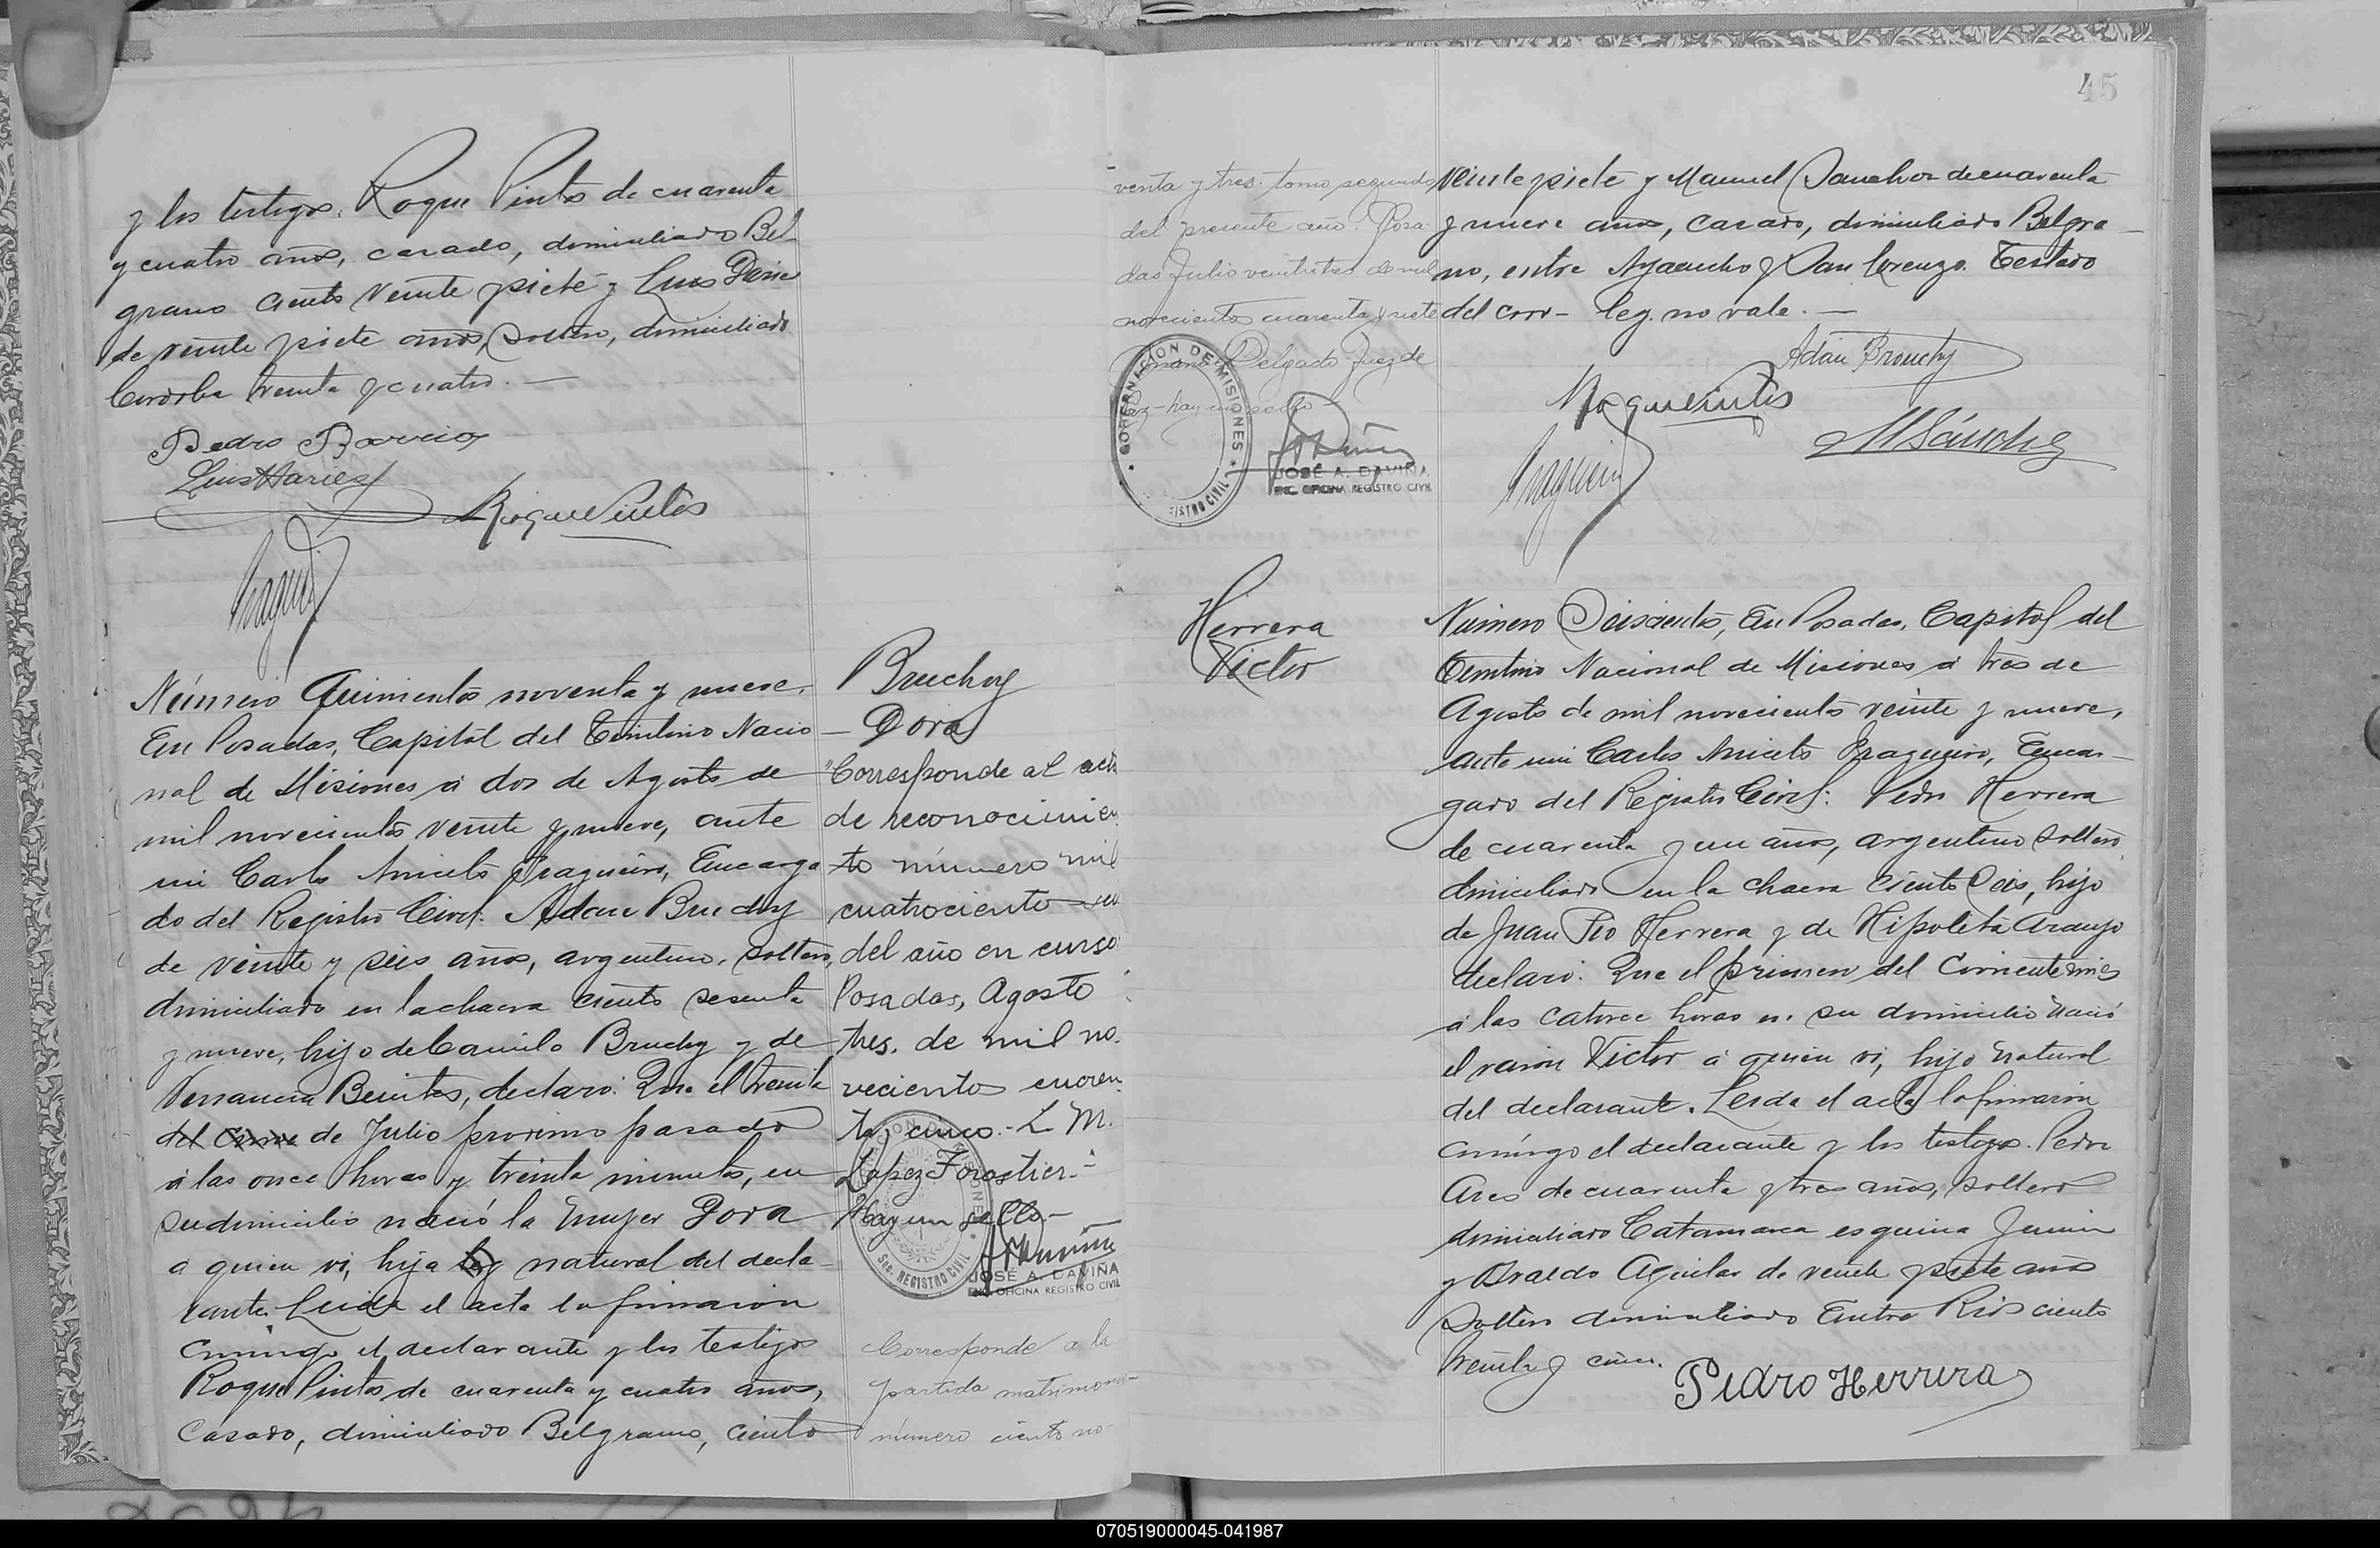 y los testigos: Roque Pintos de cuarenta
y cuatro años, casado, domiciliado Bel-
grano ciento veinte y siete y Luis
de veinte y siete años, soltero, domiciliado
Cordoba treinta y cuatro.—
Pedro Barrios
Luis
Roque Pintos
Número Quinientos noventa y nueve.
En Posadas, Capital del Territorio Nacio
nal de Misiones á dos de Agosto de
mil novecientos veinte y nueve, ante
mi Carlos Aniceto Fragueiro, Encarga
do del Registro Civil: Adan Bruchy
de veinte y seis años, argentino, soltero,
domiciliado en la chacra ciento sesenta
y nueve, hijo de Camilo Bruchy y de
Venancia Benites, declaró: Que el treinta
del de Julio proximo pasado
á las once horas y treinta minutos, en
su domicilio nació la mujer Dora
a quien vi, hija leg natural del decla-
rante. Leida el acta la firmaron
conmigo el declarante y los testigos
Roque Pintos de cuarenta y cuatro años,
casado, domiciliado Belgrano, ciento
Bruchy
— Dora
"Corresponde al acta
de reconocimien
to número mil
cuatrociento
del año en curso
Posadas, Agosto
tres, de mil no.
vecientos cuaren
ta y cinco.- L. M.
Lopez Forastier.-
Hay un sello.-
SEC. REGISTRO CIVIL
JOSÉ A. DAVIÑA
ENC. OFICINA REGISTRO CIVIL
Corresponde a la
partida matrimonial
número ciento no-
45
venta y tres. tomo segundo
del presente año. Posa-
das Julio veintitres de mil
novecientos cuarenta y siete
Delgado-Juez de
Paz-hay un sello-
GOBERNACION DE MISIONES
REGISTRO CIVIL
JOSÉ A. DAVIÑA
ENC. OFICINA REGISTRO CIVIL
veinte y siete y Manuel Sanchez de cuarenta
y nueve años, casado, domiciliado Belgra-
no, entre Ayacucho y San Lorenzo. Testado
del corr- leg. no vale.—
Adán Brouchy
Roque Pintos
M Sánchez
Herrera
Victor
Número Seiscientos, En Posadas, Capital del
Territorio Nacional de Misiones á tres de
Agosto de mil novecientos veinte y nueve,
ante mi Carlos Aniceto Fragueiro, Encar-
gado del Registro Civil: Pedro Herrera
de cuarenta y un años, argentino soltero,
domiciliado en la chacra ciento seis, hijo
de Juan Pio Herrera y de Hipolita Araujo
declaró: Que el primero del corriente mes
á las catorce horas en su domicilio nació
el varon Victor á quien vi, hijo natural
del declarante. Leida el acta la firmaron
conmigo el declarante y los testigos. Pedro
Ares de cuarenta y tres años, soltero
domiciliado Catamarca esquina Junin
y Aguilar de veinte y siete años
soltero domiciliado Entre Rios ciento
treinta y cinco.
Pedro Herrera
070519000045-041987